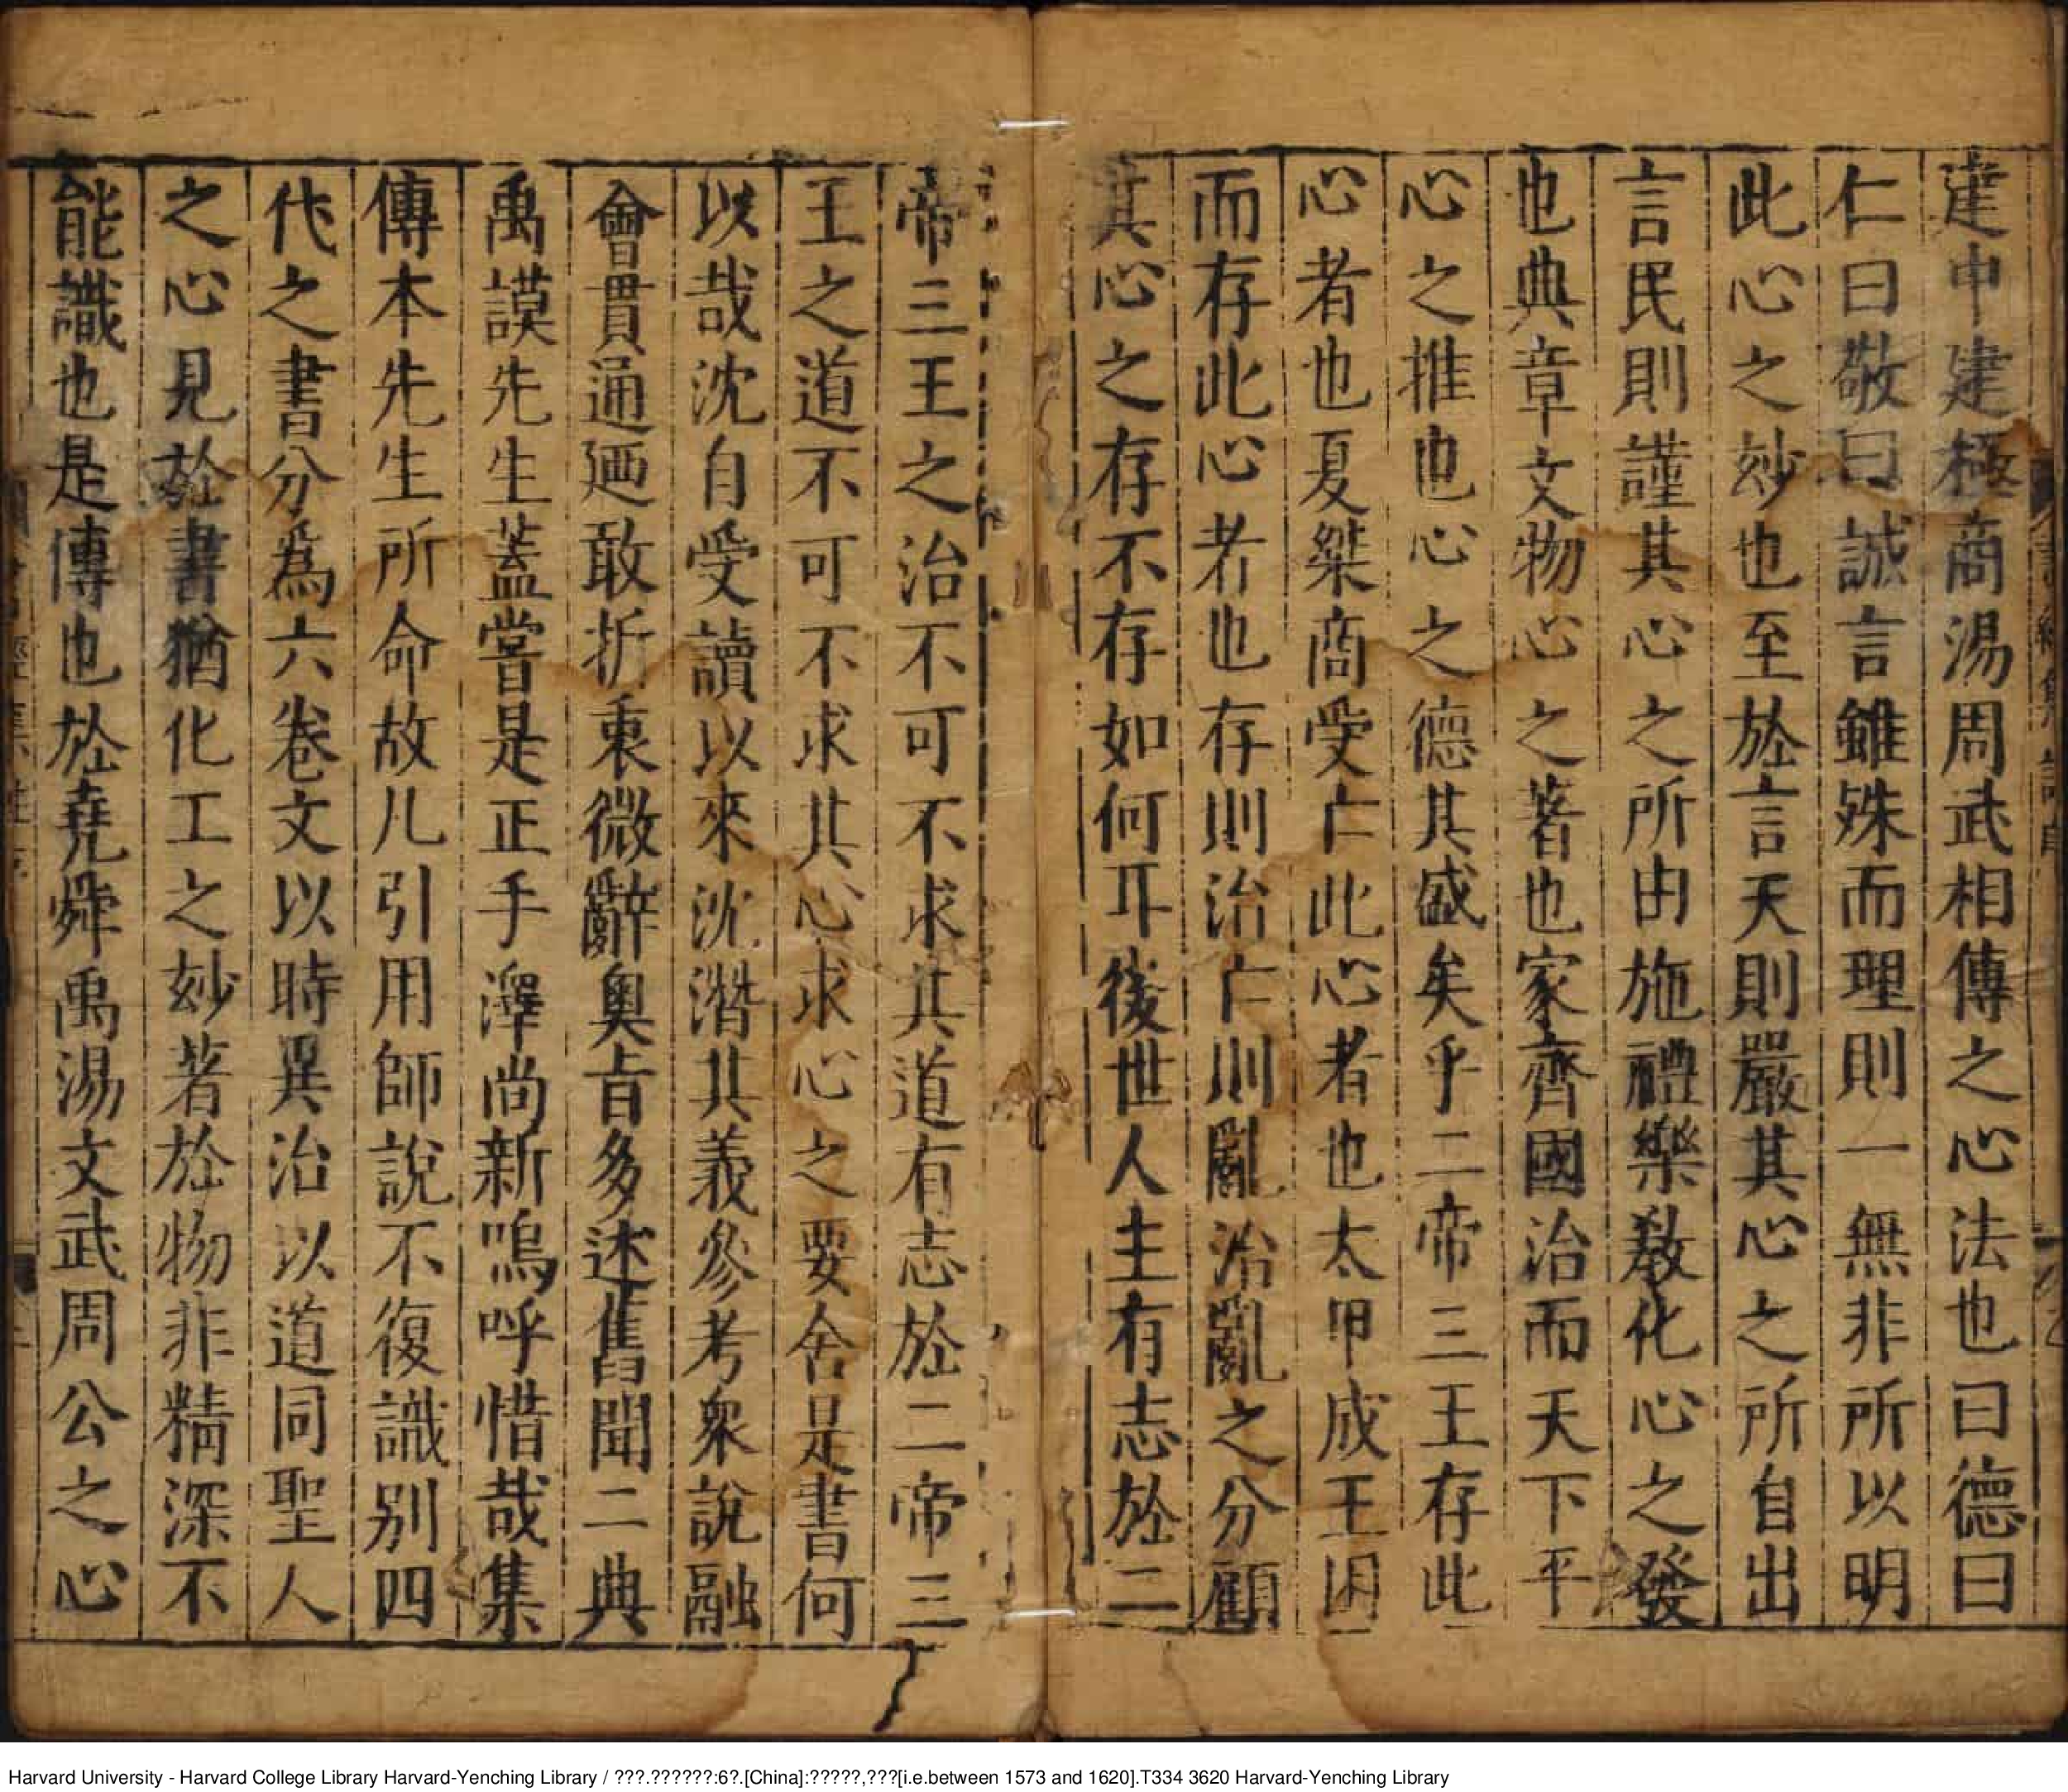 建中建極商湯周武相傳之心法也曰德曰
仁曰敬曰誠言雖殊而理則一無非所以明
此心之玅也至於言天則嚴其心之所自出
言民則謹其心之所由施禮樂敎化心之發
也典章文物心之著也家齊國治而天下平
心之推也心之德其盛矣乎二帝三王存此
心者也夏桀商受亡此心者也太甲成王困
而存此心者也存則治亡則亂治亂之分顧
其心之存不存如何耳後世人主有志於二
帝三王之治不可不求其道有志於二帝三
王之道不可不求其心求心之要舍是書何
以哉沈自受讀以來沈潛其義參考衆說融
會貫通廼敢折衷微辭奧旨多述舊聞二典
禹謨先生蓋嘗是正手澤尚新嗚呼惜哉集
傳本先生所命故凡引用師說不復識别四
代之書分爲六卷文以時異治以道同聖人
之心見於書猶化工之玅著於物非精深不
能識也是傳也於堯舜禹湯文武周公之心
Harvard University - Harvard College Library Harvard-Yenching Library / ???.??????:6?.[China]:?????,???[i.e.between 1573 and 1620].T334 3620 Harvard-Yenching Library